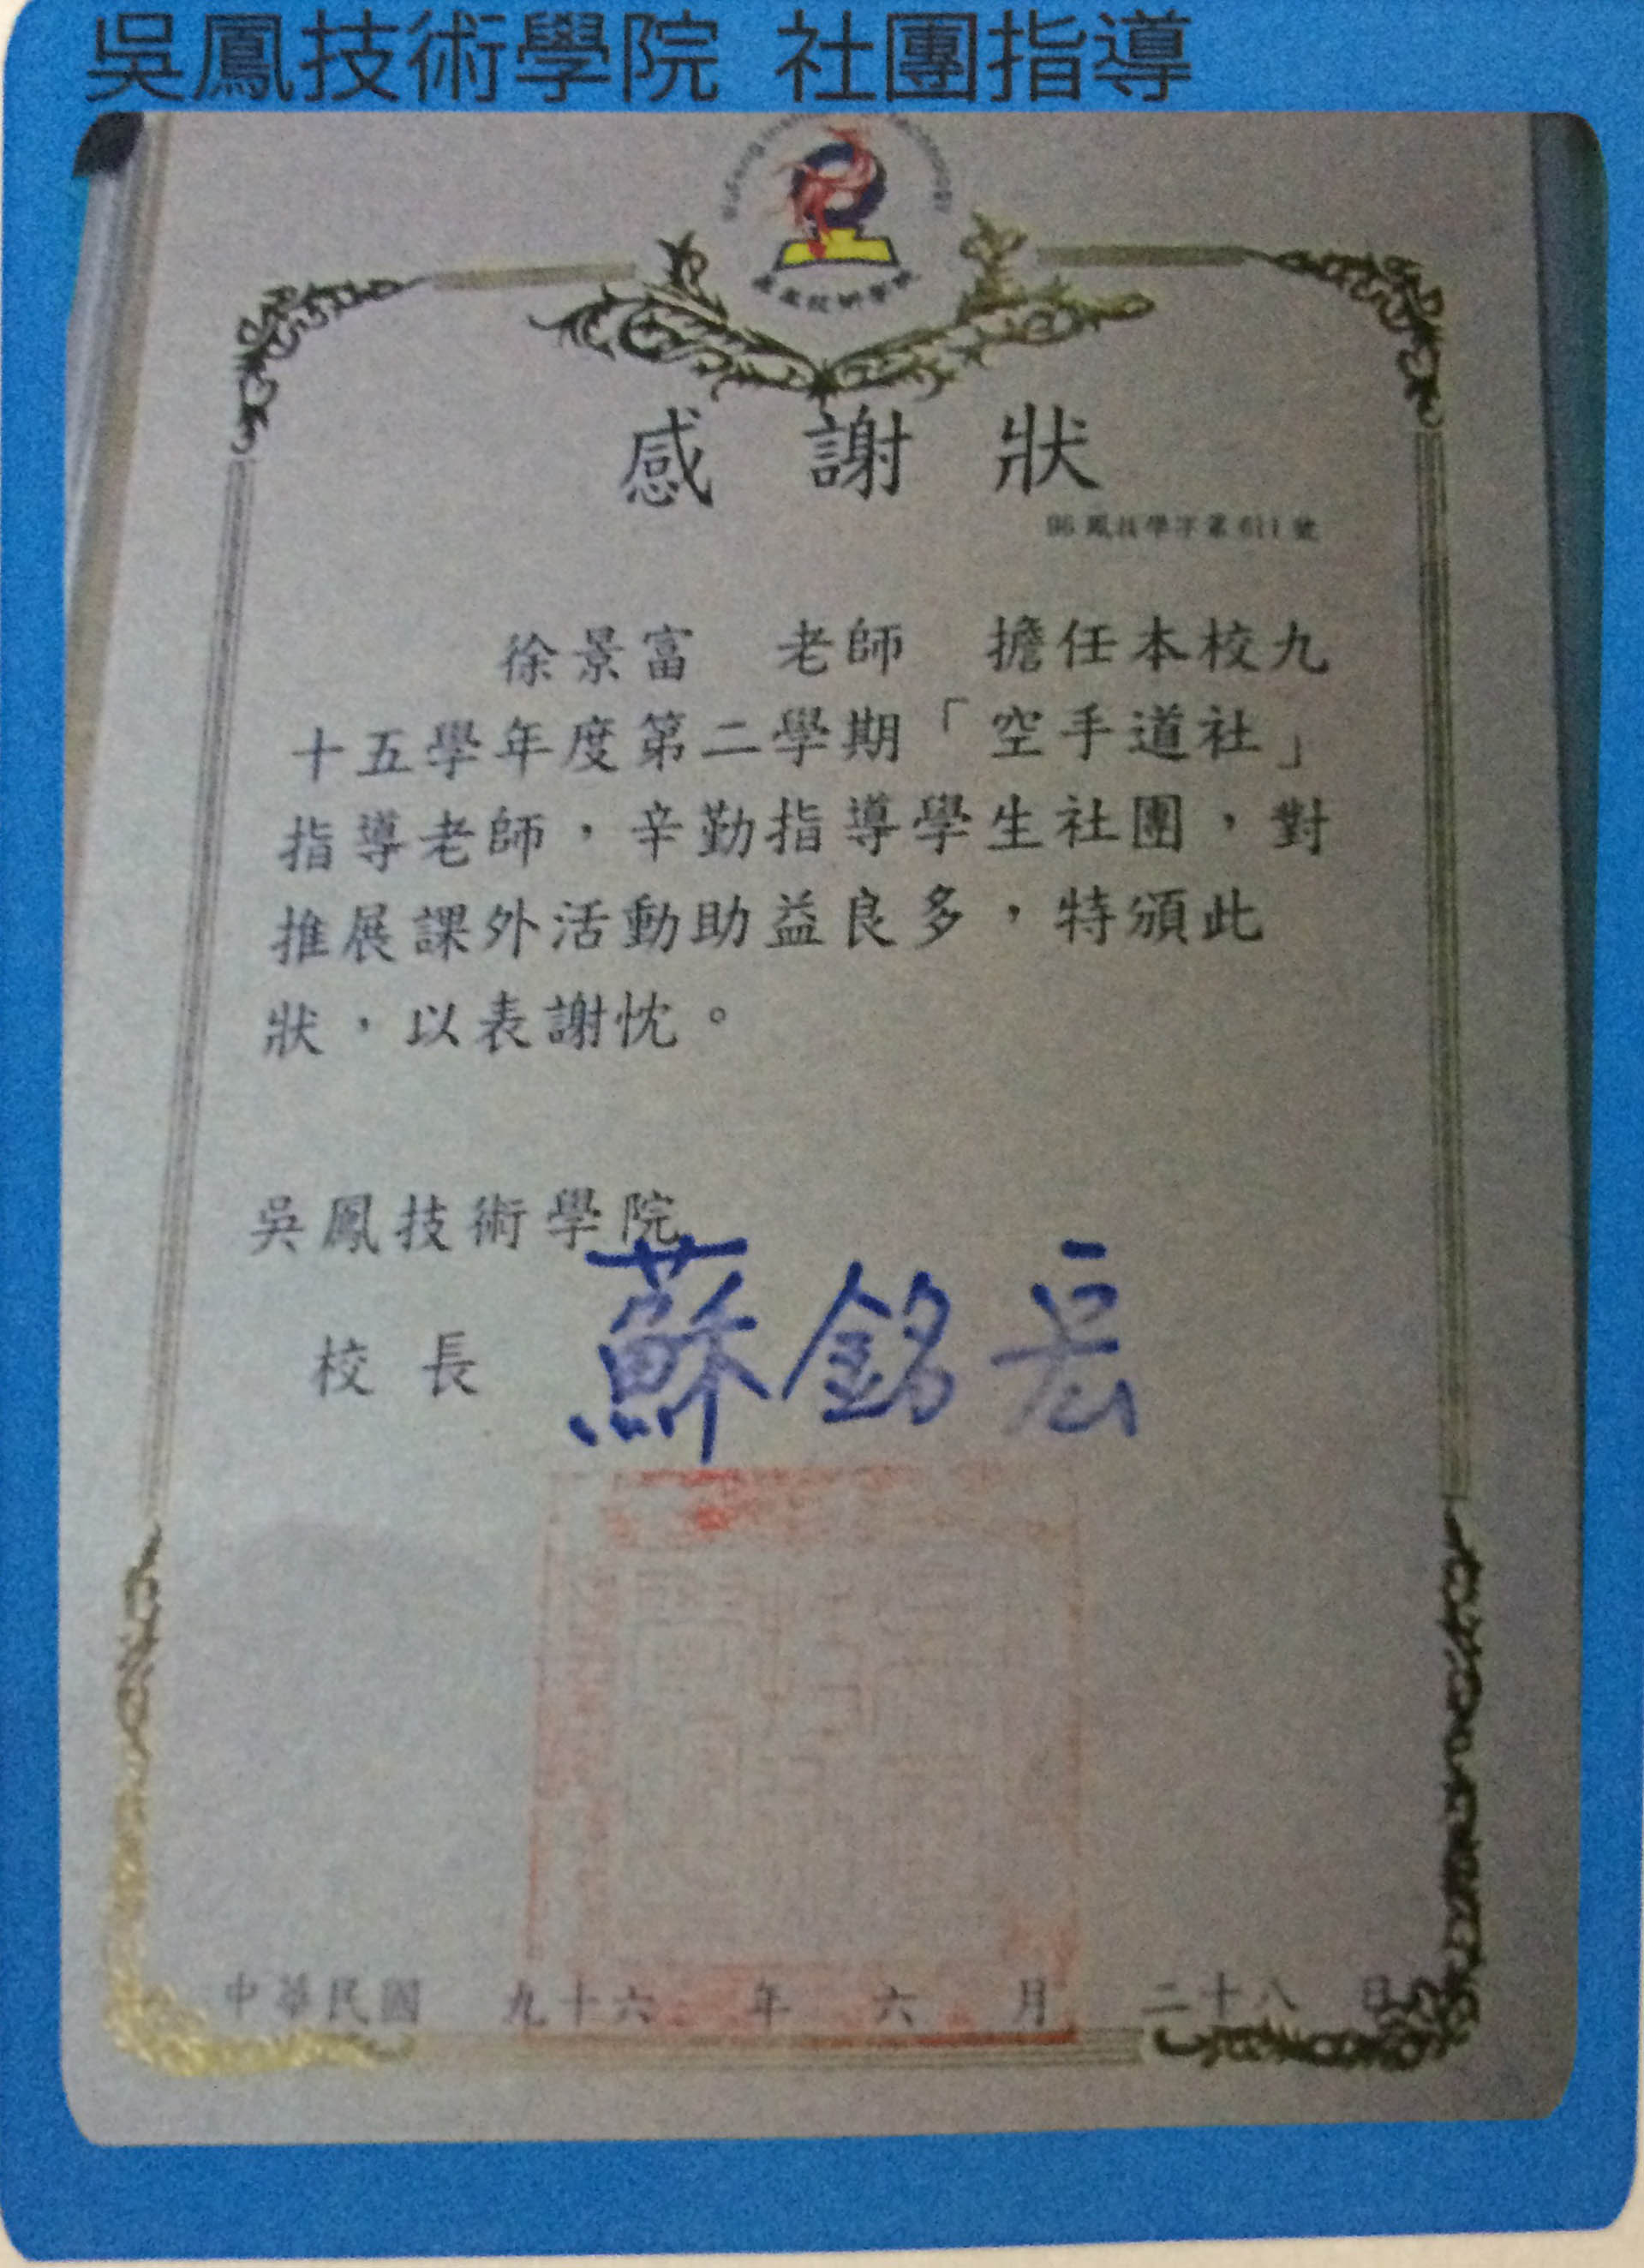 吳鳳技術學院 社團指導
吳鳳技術學院
感謝狀
96鳳技學字第611號
徐景富 老師 擔任本校九
十五學年度第二學期「空手道社」
指導老師，辛勤指導學生社團，對
推展課外活動助益良多，特頒此
狀，以表謝忱。
吳鳳技術學院
校長 蘇銘宏
中華民國 九十六 年 六 月 二十八 日